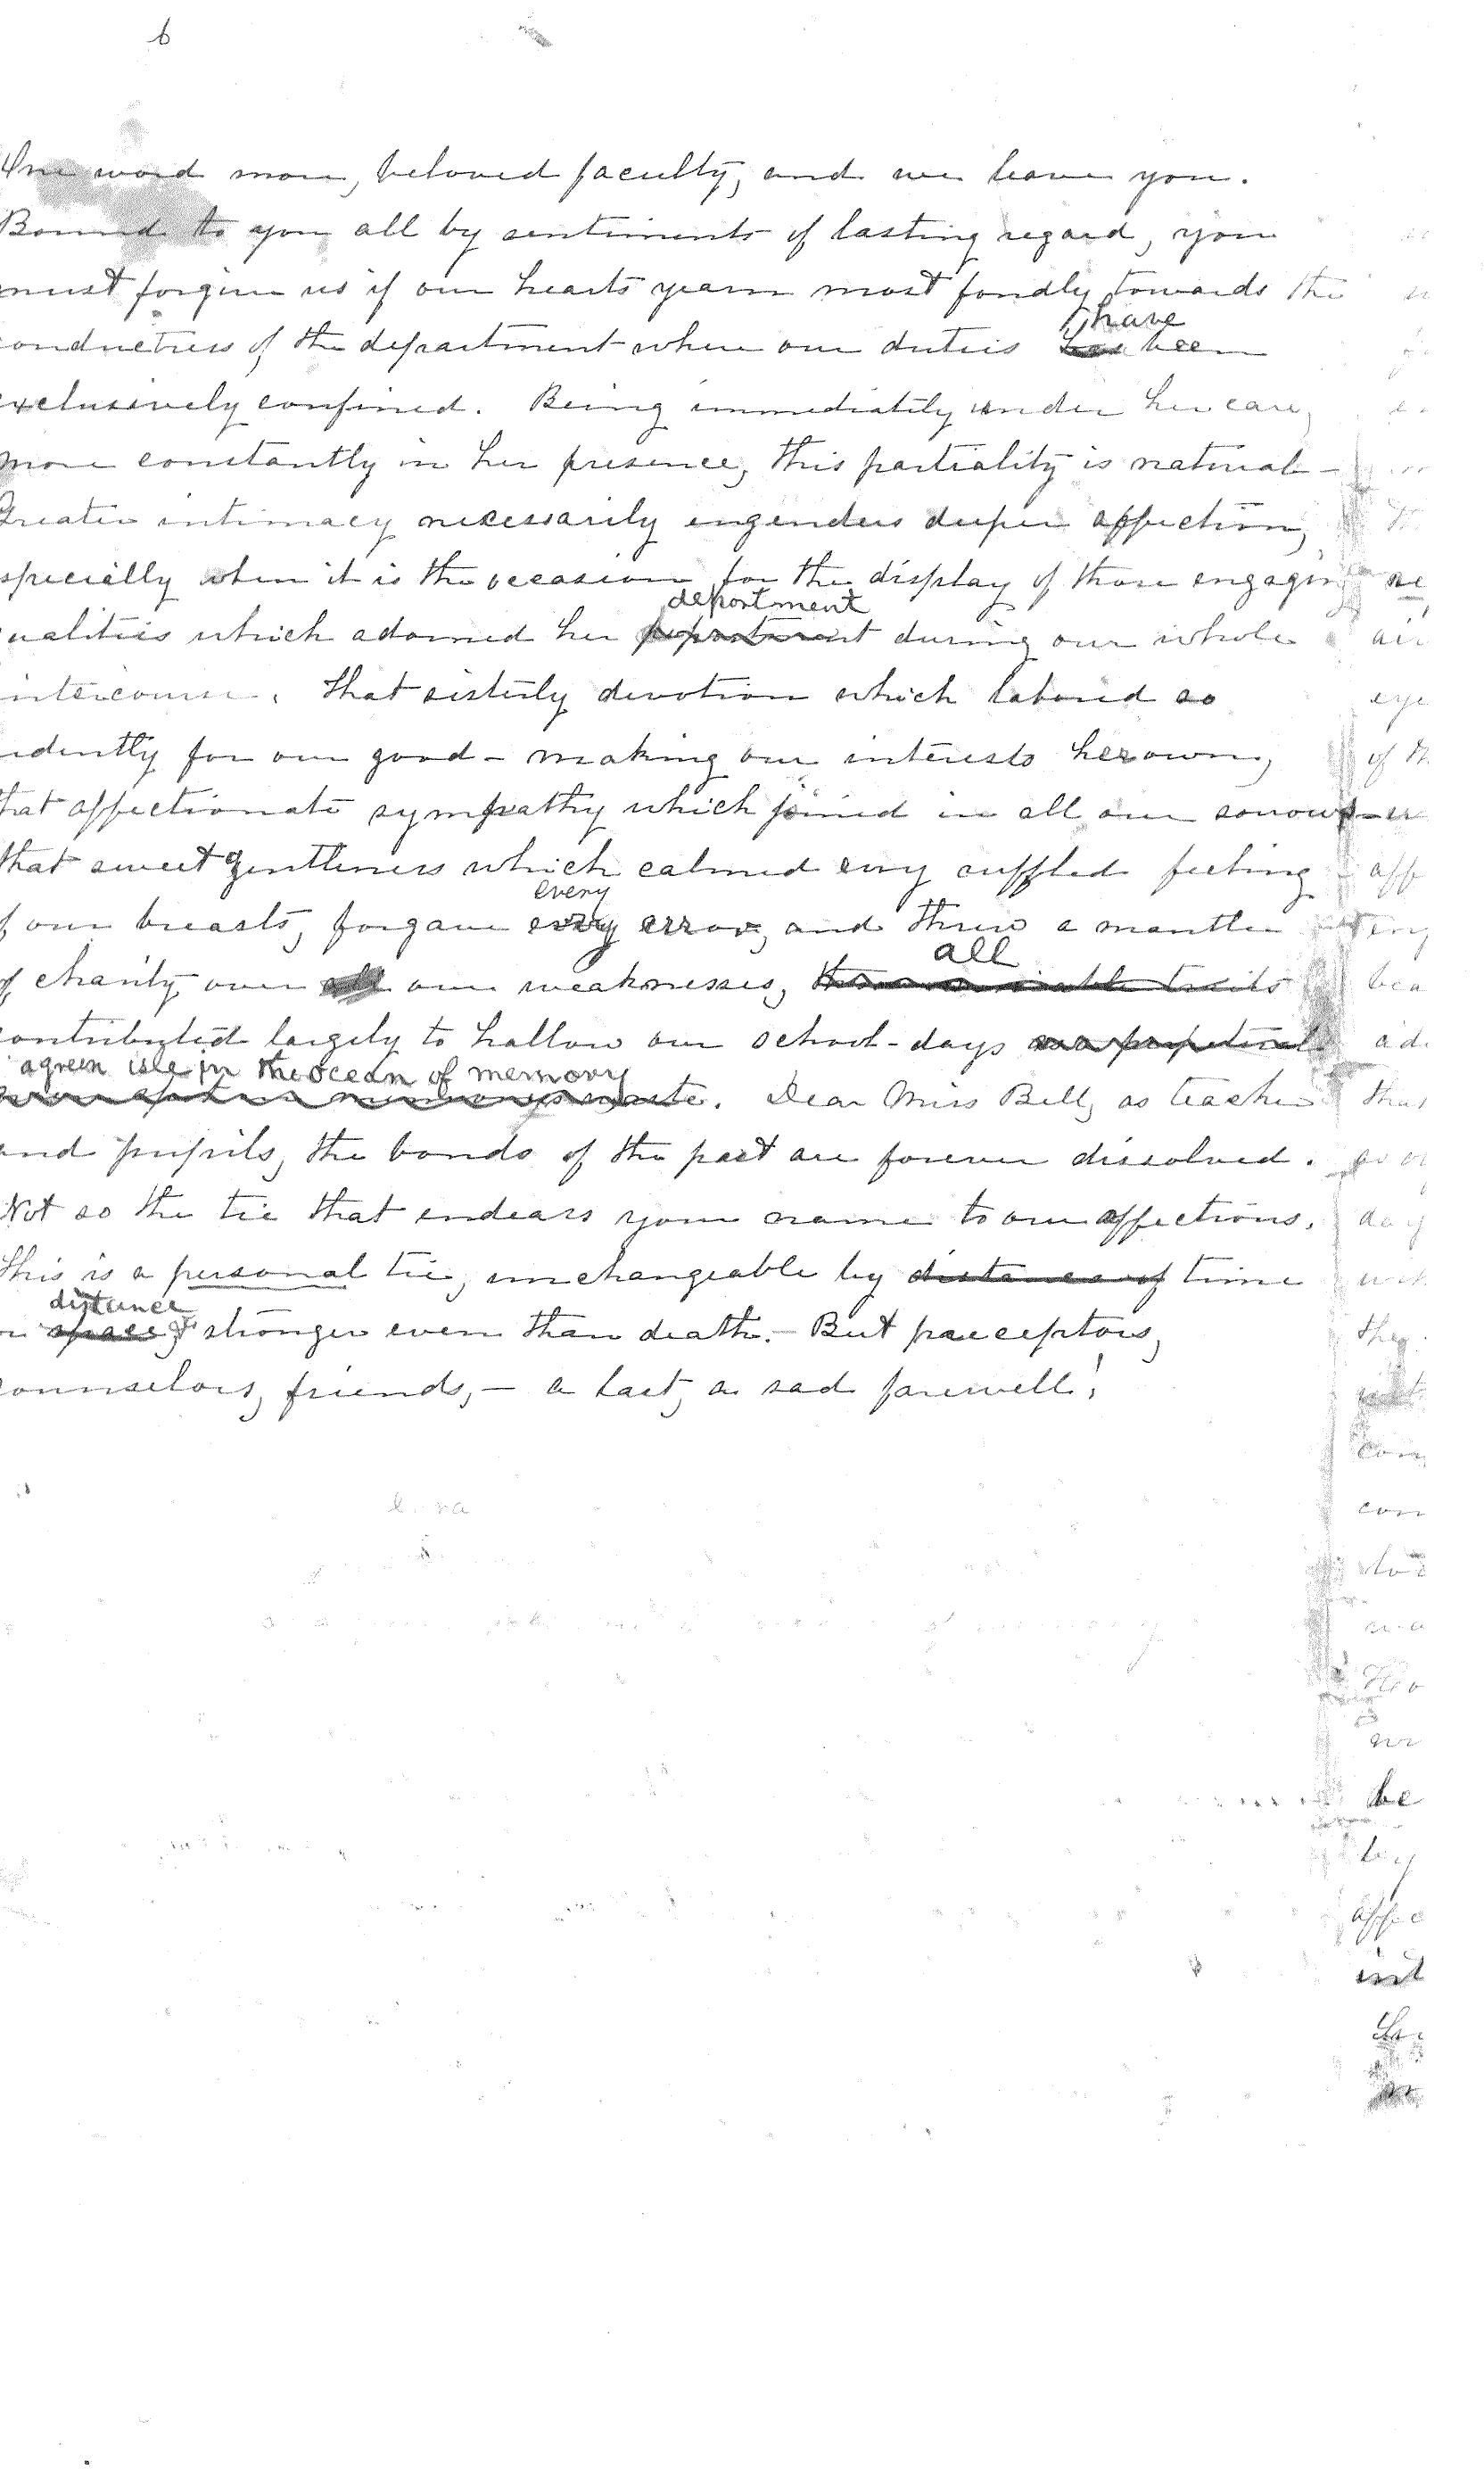 6
One word more, beloved faculty, and we leave you.
Bound to you all by sentiments of lasting regard, you
must forgive us if our hearts yearn most fondly towards the
have
onductress of the department where our duties has been
exclusively confined. Being immediately under her care,
more constantly in her presence, this partiality is natural -
Greater intimacy necessarily engenders deeper affection,
specially when it is the occasion for the display of those engagin
deportment
ualities which adorned her during our whole
intercourse. That sisterly devotion which labored so
rdently for our good - making our interests her own,
that affectionate sympathy which joined in all our sorrows -
that sweet gentleness which calmed every ruffled feeling
every
f our breasts, forgave every error, and threw a mantle
all
of charity over all our weaknesses, these amiable traits
contributed largely to hallow our school-days as a perpetual
a green isle in the ocean of memory
waste. Dear Miss Bell, as teacher
and pupils, the bonds of the past are forever dissolved.
Not so the tie that endears your name to our affections.
This is a personal tie, unchangeable by distance of time
distance
r space & stronger even than death. - But preceptors,
counselors, friends, - a last, a sad farewell!